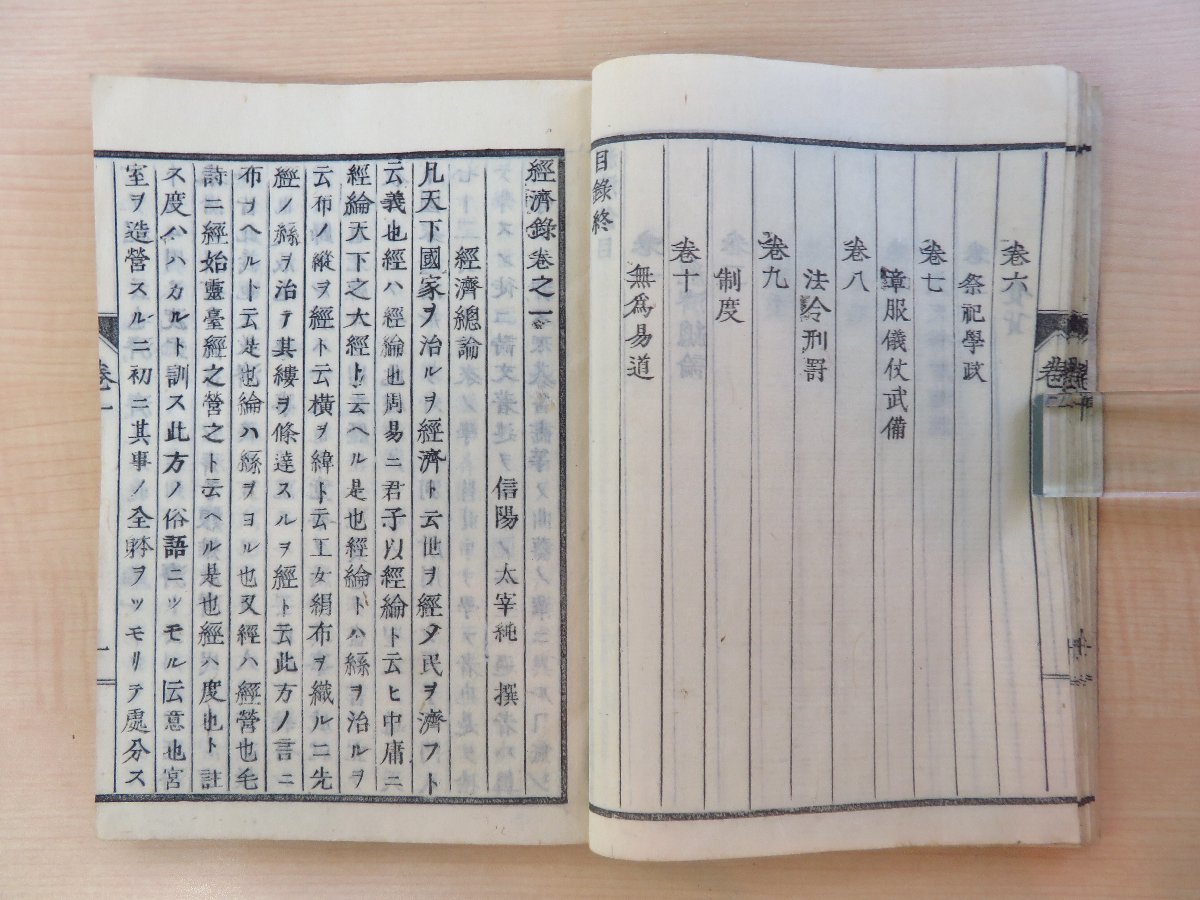 卷六
祭祀學政
卷七
章服儀仗武備
卷八
法令刑罰
卷九
制度
卷十
無爲易道
目錄終
經濟錄卷之一
信陽 太宰純 撰
經濟總論
凡天下國家ヲ治ルヲ經濟ト云世ヲ經メ民ヲ濟フト
云義也經ハ經綸也周易ニ君子以經綸ト云ヒ中庸ニ
經綸天下之大經ト云ヘル是也經綸トハ絲ヲ治ルヲ
云布ノ縱ヲ經ト云橫ヲ緯ト云工女絹布ヲ織ルニ先
經ノ絲ヲ治テ其縷ヲ條達スルヲ經ト云此方ノ言ニ
布ヲヘルト云是也綸ハ絲ヲヨル也又經ハ經營也毛
詩ニ經始靈臺經之營之ト云ヘル是也經ハ度也ト註
ス度ハハカルト訓ス此方ノ俗語ニツモル伝意也宮
室ヲ造營スルニ初ニ其事ノ全體ヲツモリテ處分ス
卷一
一